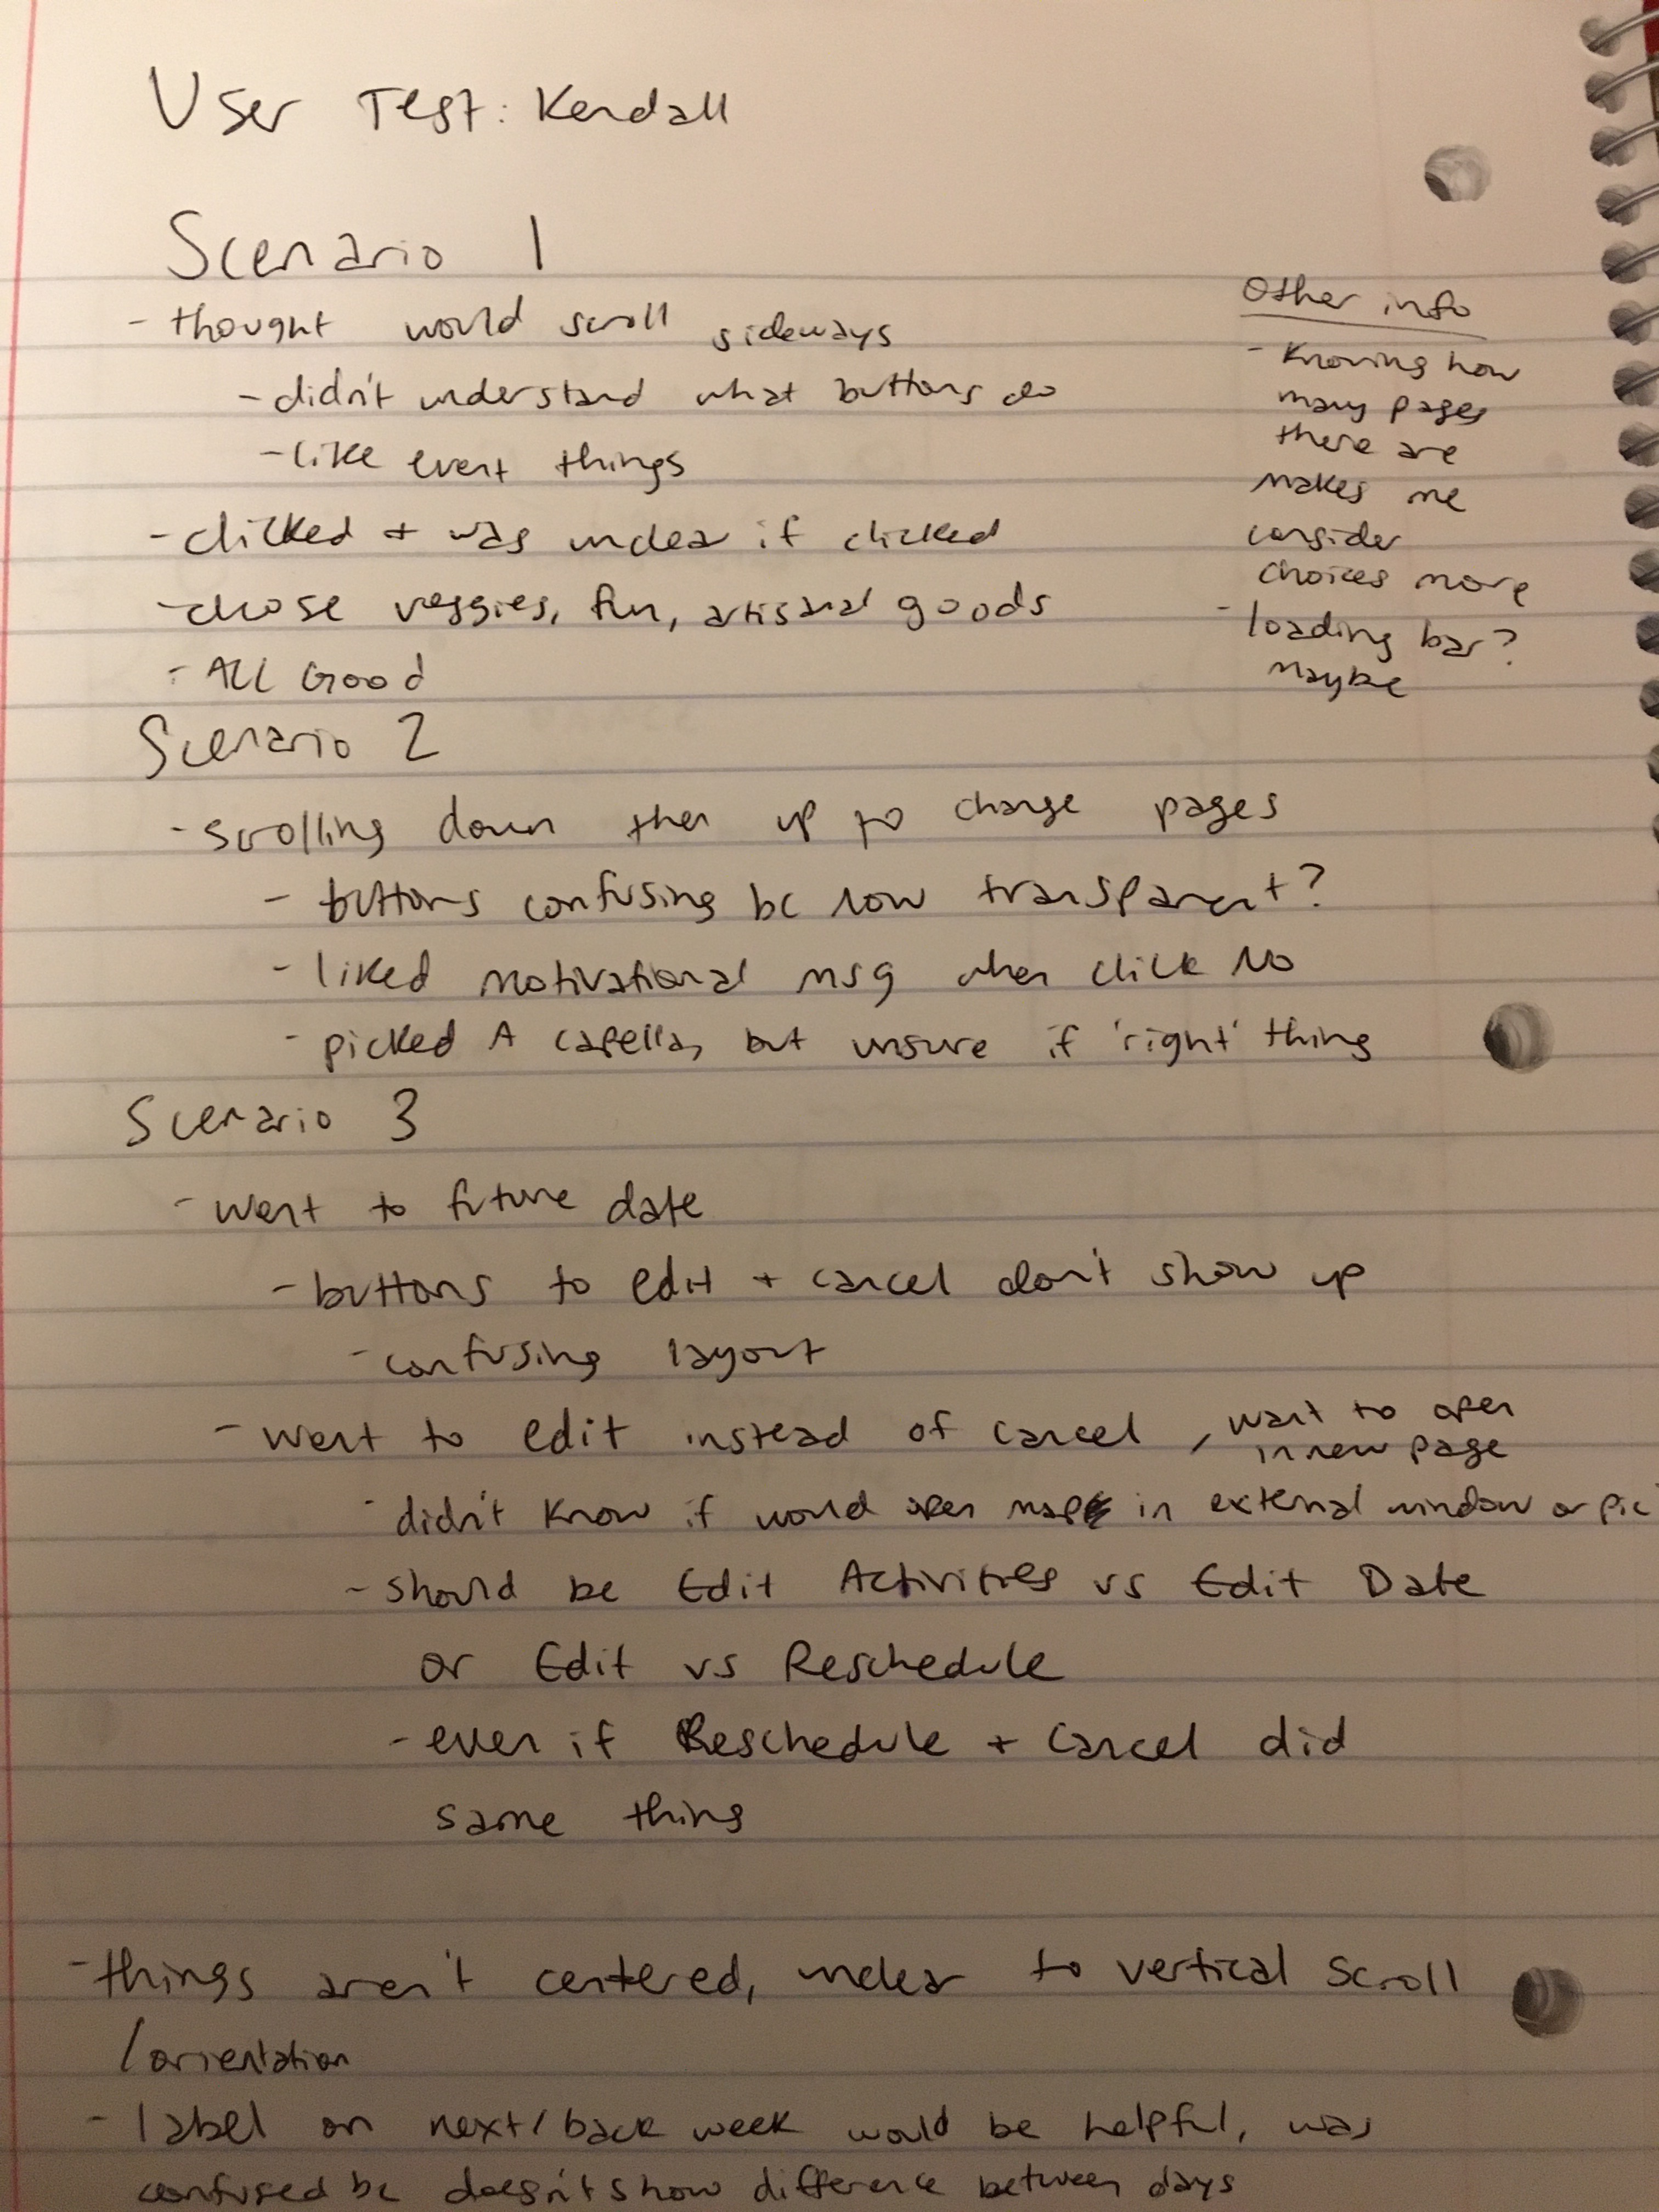 User Test: Kendall
Scenario 1
- thought would scroll sideways
- didn't understand what buttons do
- like event things
- clicked + was unclear if clicked
- chose veggies, fun, artisanal goods
- All Good
Other info
- Knowing how
many pages
there are
makes me
consider
choices more
- loading bar?
maybe
Scenario 2
- scrolling down then up to change pages
- buttons confusing bc low transparent?
- liked motivational msg when click No
- picked A capella, but unsure if 'right' thing
Scenario 3
- went to future date
- buttons to edit + cancel don't show up
- confusing layout
- went to edit instead of cancel, want to open
in new page
- didn't know if would open map in external window or pic
- should be Edit Activities vs Edit Date
or Edit vs Reschedule
- even if Reschedule + Cancel did
same thing
- things aren't centered, unclear to vertical scroll
/orientation
- label on next/back week would be helpful, was
confused bc doesn't show difference between days